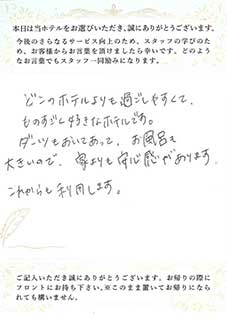 本日は当ホテルをお選びいただき、誠にありがとうございます。
今後のさらなるサービス向上のため、スタッフの学びのた
め、お客様からお言葉を頂けましたら幸いです。どのよう
なお言葉でもスタッフ一同励みになります。
どこのホテルよりも過ごしやすくて、
ものすごく好きなホテルです。
ダーツもおいてあって、お風呂も
大きいので、家よりも安心感があります。
これからも利用します。
ご記入いただき誠にありがとうございます。お帰りの際に
フロントにお持ち下さい。※このまま置いてお帰りになら
れても構いません。